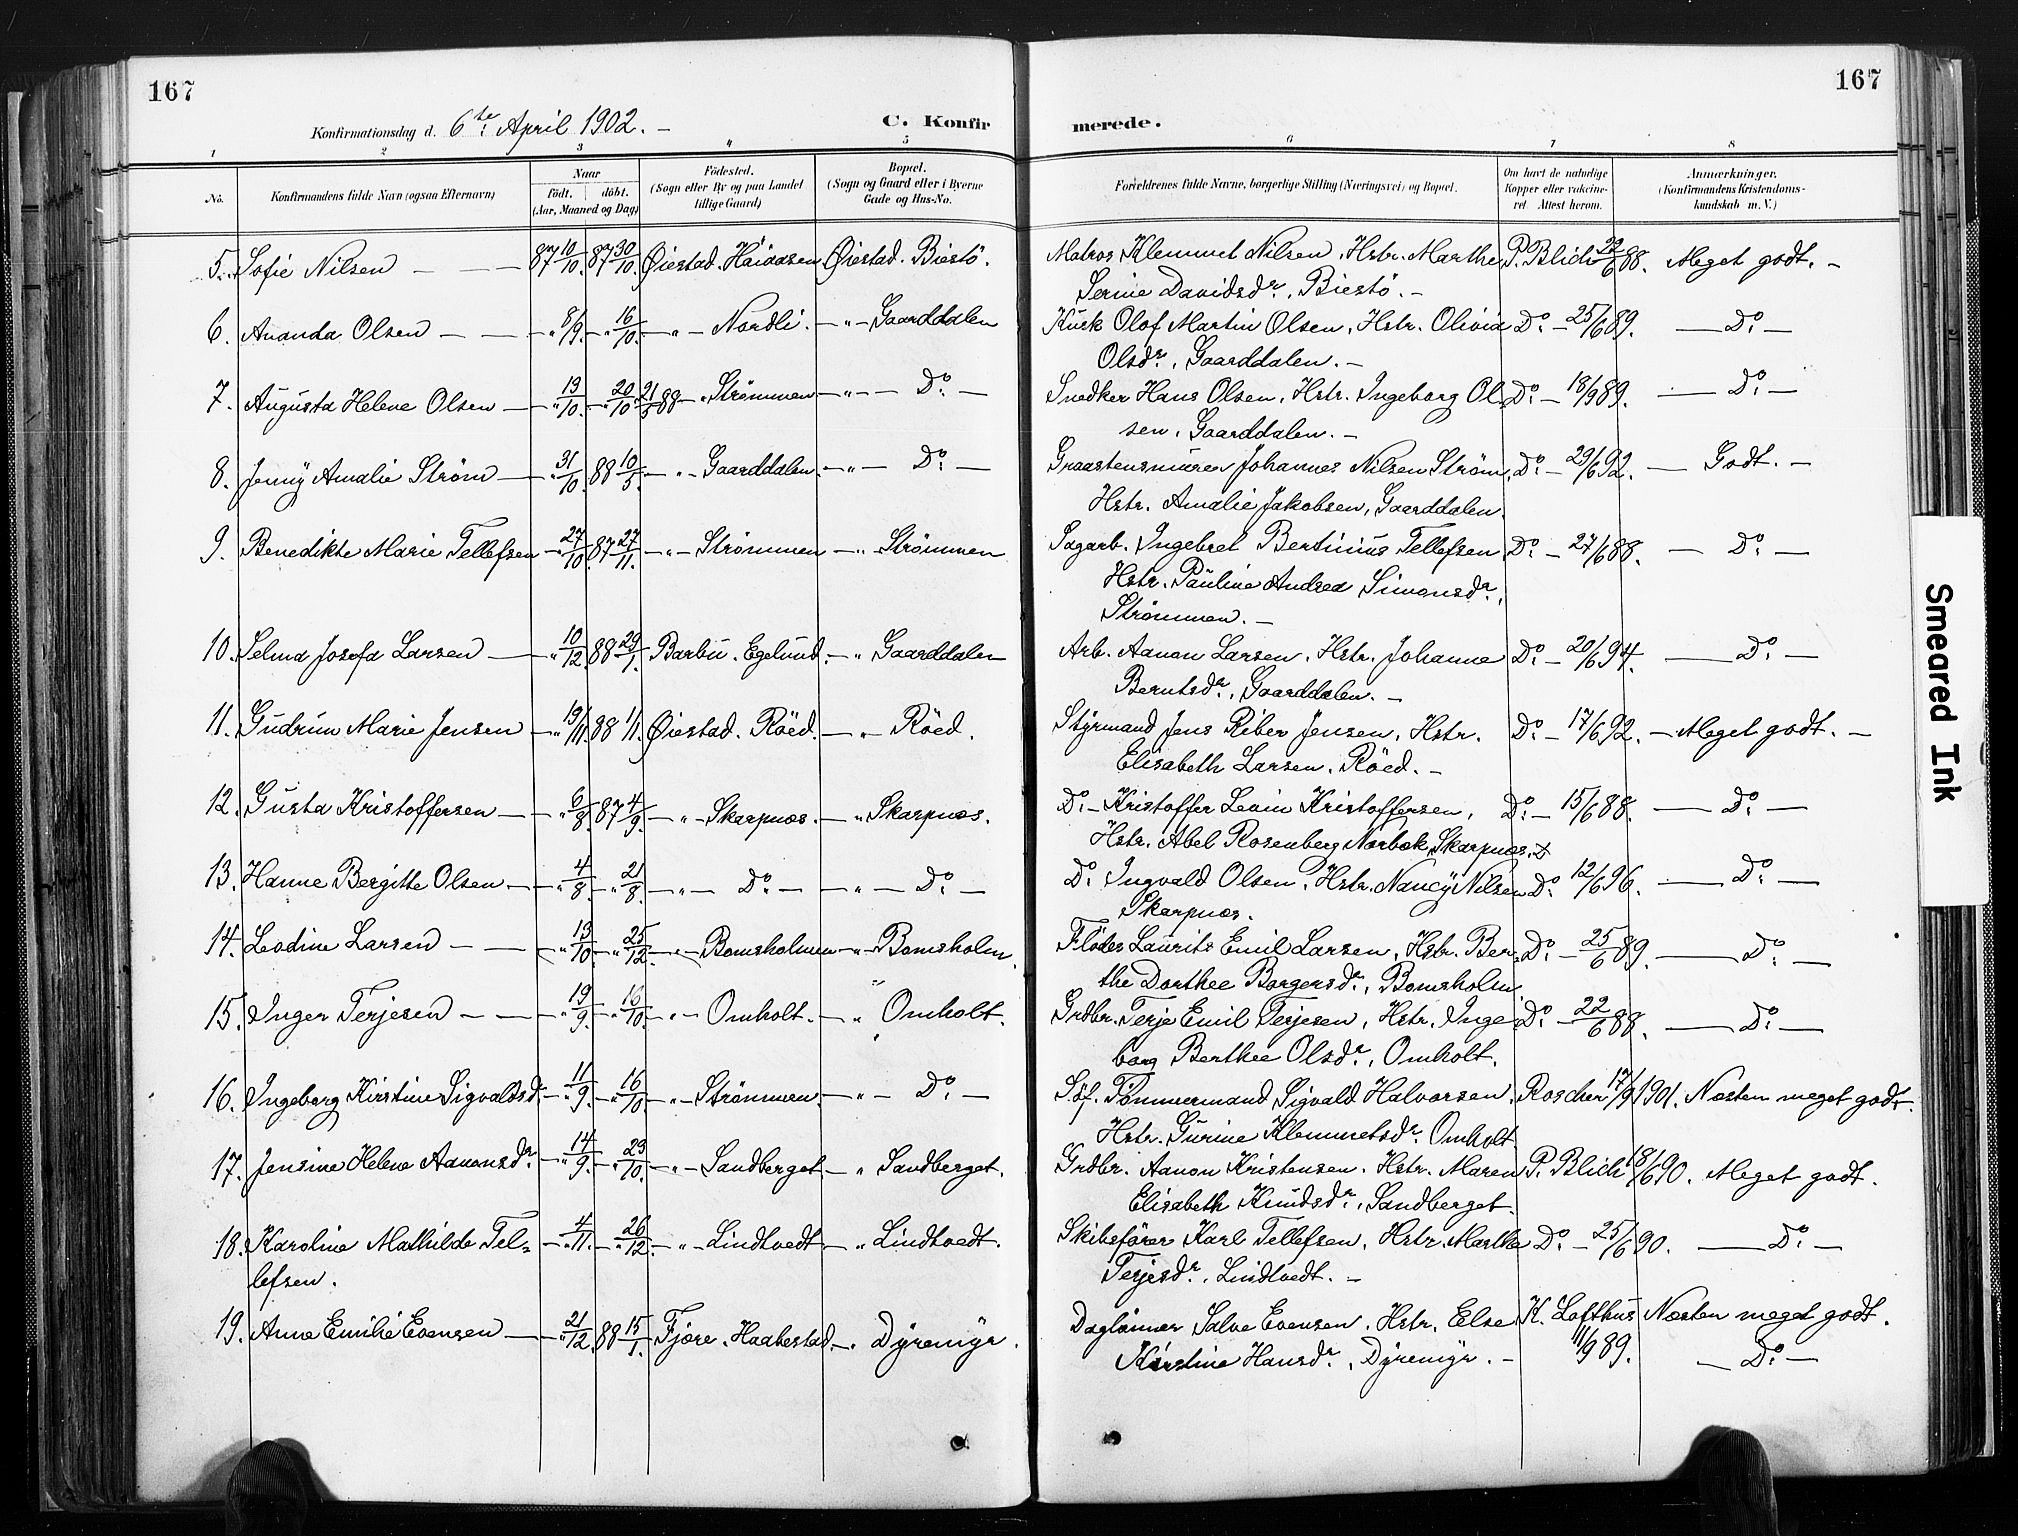 167
167
Konfirmationsdag d. 6te April 1902. —
C. Konfir
merede.
1 2 3 4 5 6 7 8
No. Konfirmandens fulde Navn (ogsaa Efternavn)
Naar
födt. döbt.
(Aar, Maaned og Dag)
Födested.
(Sogn eller By og paa Landet
tillige Gaard)
Bopæl.
(Sogn og Gaard eller i Byerne
Gade og Hus-No.
Forældrenes fulde Navne, borgerlige Stilling (Næringsvei) og Bopæl.
Om havt de naturlige
Kopper eller vakcine-
ret Attest herom.
Anmærkninger.
(Konfirmandens Kristendoms-
kundskab m. V.)
5. Sofie Nilsen — — 87 10/10. 87 30/10. Øiestad. Haiaasen Øiestad. Biestö. Matros Klemmet Nilsen, Hstr. Marthe P. Blich 22/6 88. Meget godt. —
Serine Davidsdr., Biestö. —
6. Ananda Olsen — — " 8/9. — " 16/10. — " - Nordli. — " - Gaarddalen Kusk Olof Martin Olsen, Hstr. Olivia Do. — 25/6 89. — Do. —
Olsdr., Gaarddalen. —
7. Augusta Helene Olsen — " 13/10. — " 20/10 21/5 88 — " Strømmen — " — Do. — Snedker Hans Olsen, Hstr. Ingeborg Ol- Do. — 18/9 89. — Do. —
sen, Gaarddalen. —
8. Jenny Amalie Strøm — " 31/10. 88 10/5. — " - Gaarddalen. — " — Do. — Graastensmurer Johannes Nilsen Strøm, Do. — 29/6 92. — Godt. —
Hstr. Amalie Jakobsen, Gaarddalen.
9. Benedikte Marie Tellefsen — " 27/10. 87 27/11. — " - Strømmen — " Strømmen Sagarb. Ingebret Bertinius Tellefsen, Do. — 27/6 88. — Do. —
Hstr. Pauline Andrea Simonsdr.,
Strømmen. —
10. Selma Josefa Larsen — " 10/12. 88 29/1. Barbu. Egelund. — " Gaarddalen Arb. Aanon Larsen, Hstr. Johanne Do. — 20/6 94. — Do. —
Berntsdr., Gaarddalen. —
11. Gudrun Marie Jensen — " 19/11. 88 1/1. Øiestad. Röed. — " Röed. Styrmand Jens Riber Jensen, Hstr. Do. — 17/6 92. — Meget godt. —
Elisabeth Larsen, Röed. —
12. Gusta Kristoffersen — " 6/8. 87 4/9. — " - Skarpnæs. — " Skarpnæs. Do. — Kristoffer Levin Kristoffersen, Do. — 15/6 88. — Do. —
Hstr. Abel Rosenberg Nørbæk, Skarpnæs.
13. Hanne Bergitte Olsen — " 4/8. — " 21/8. — " — Do. — — " — Do. — Do. Ingvald Olsen, Hstr. Nancy Nilsen Do. 12/6 96. — Do. —
Skarpnæs.
14. Leodine Larsen — — " 13/10. — " 25/12. — " - Bomsholmen — " - Bomsholm. Fløder Laurits Emil Larsen, Hstr. Ber- Do. — 25/6 89. — Do. —
the Dorthee Borgersdr., Bomsholm
15. Inger Terjesen — — " 19/9. — " 16/10. — " - Omholt. — " Omholt. Grdbr. Terje Emil Terjesen, Hstr. Inge- Do. — 22/6 88. — Do. —
borg Berthee Olsdr., Omholt.
16. Ingeborg Kirstine Sigvaldsd. — " 11/9. — " 16/10. — " - Strømmen. — " — Do. — Söf. Tømmermand Sigvald Halvorsen, Roscher 17/9 1901. Næsten meget godt.
Hstr. Gurine Klemmetsdr. Omholt.
17. Jensine Helene Aanonsdr. — " 14/9. — " 23/10. — " - Sandberget. — " Sandberget. Grdbr. Aanon Kristensen, Hstr. Maren P. Blich 18/6 90. Meget godt.
Elisabeth Knudsdr., Sandberget.
18. Karoline Mathilde Tel- — " 4/11. — " 26/12. — " - Lindtvedt — " Lindtvedt. Skibsfører Karl Tellefsen, Hstr. Marthe Do. — 25/6 90. — Do. —
lefsen. Terjesdr., Lindtvedt. —
19. Anne Emilie Evensen — " 21/12. 88 15/1. Fjære. Haabestad — " Dyremyr. Daglønner Salve Evensen, Hstr. Else K. Lofthus Næsten meget godt.
Kirstine Hansdr., Dyremyr. — 11/9 89. — Do. —
Smeared Ink